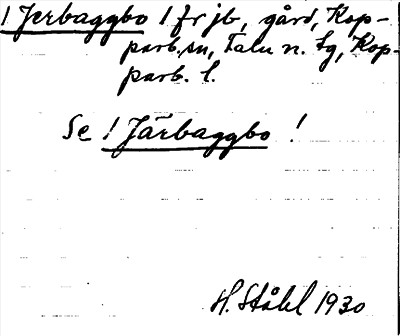 ! Jerbaggbo ! fr jb, gård, Kop-
parb. sn, Falu n. tg, Kop-
parb. l.
Se ! Järbaggbo !
H. Ståhl 1930